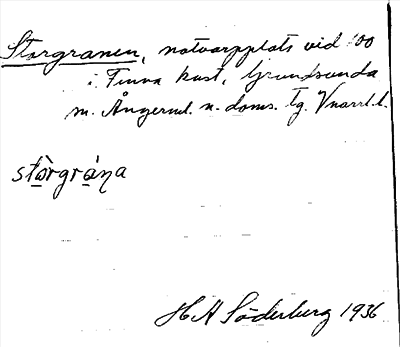 Storgranen, notvarpplats vid 100
i. Finna kust, Grundsunda
m. Ångerml. n. doms. tg. Vnorrl. l.
stòrgrána
H A Söderberg 1936